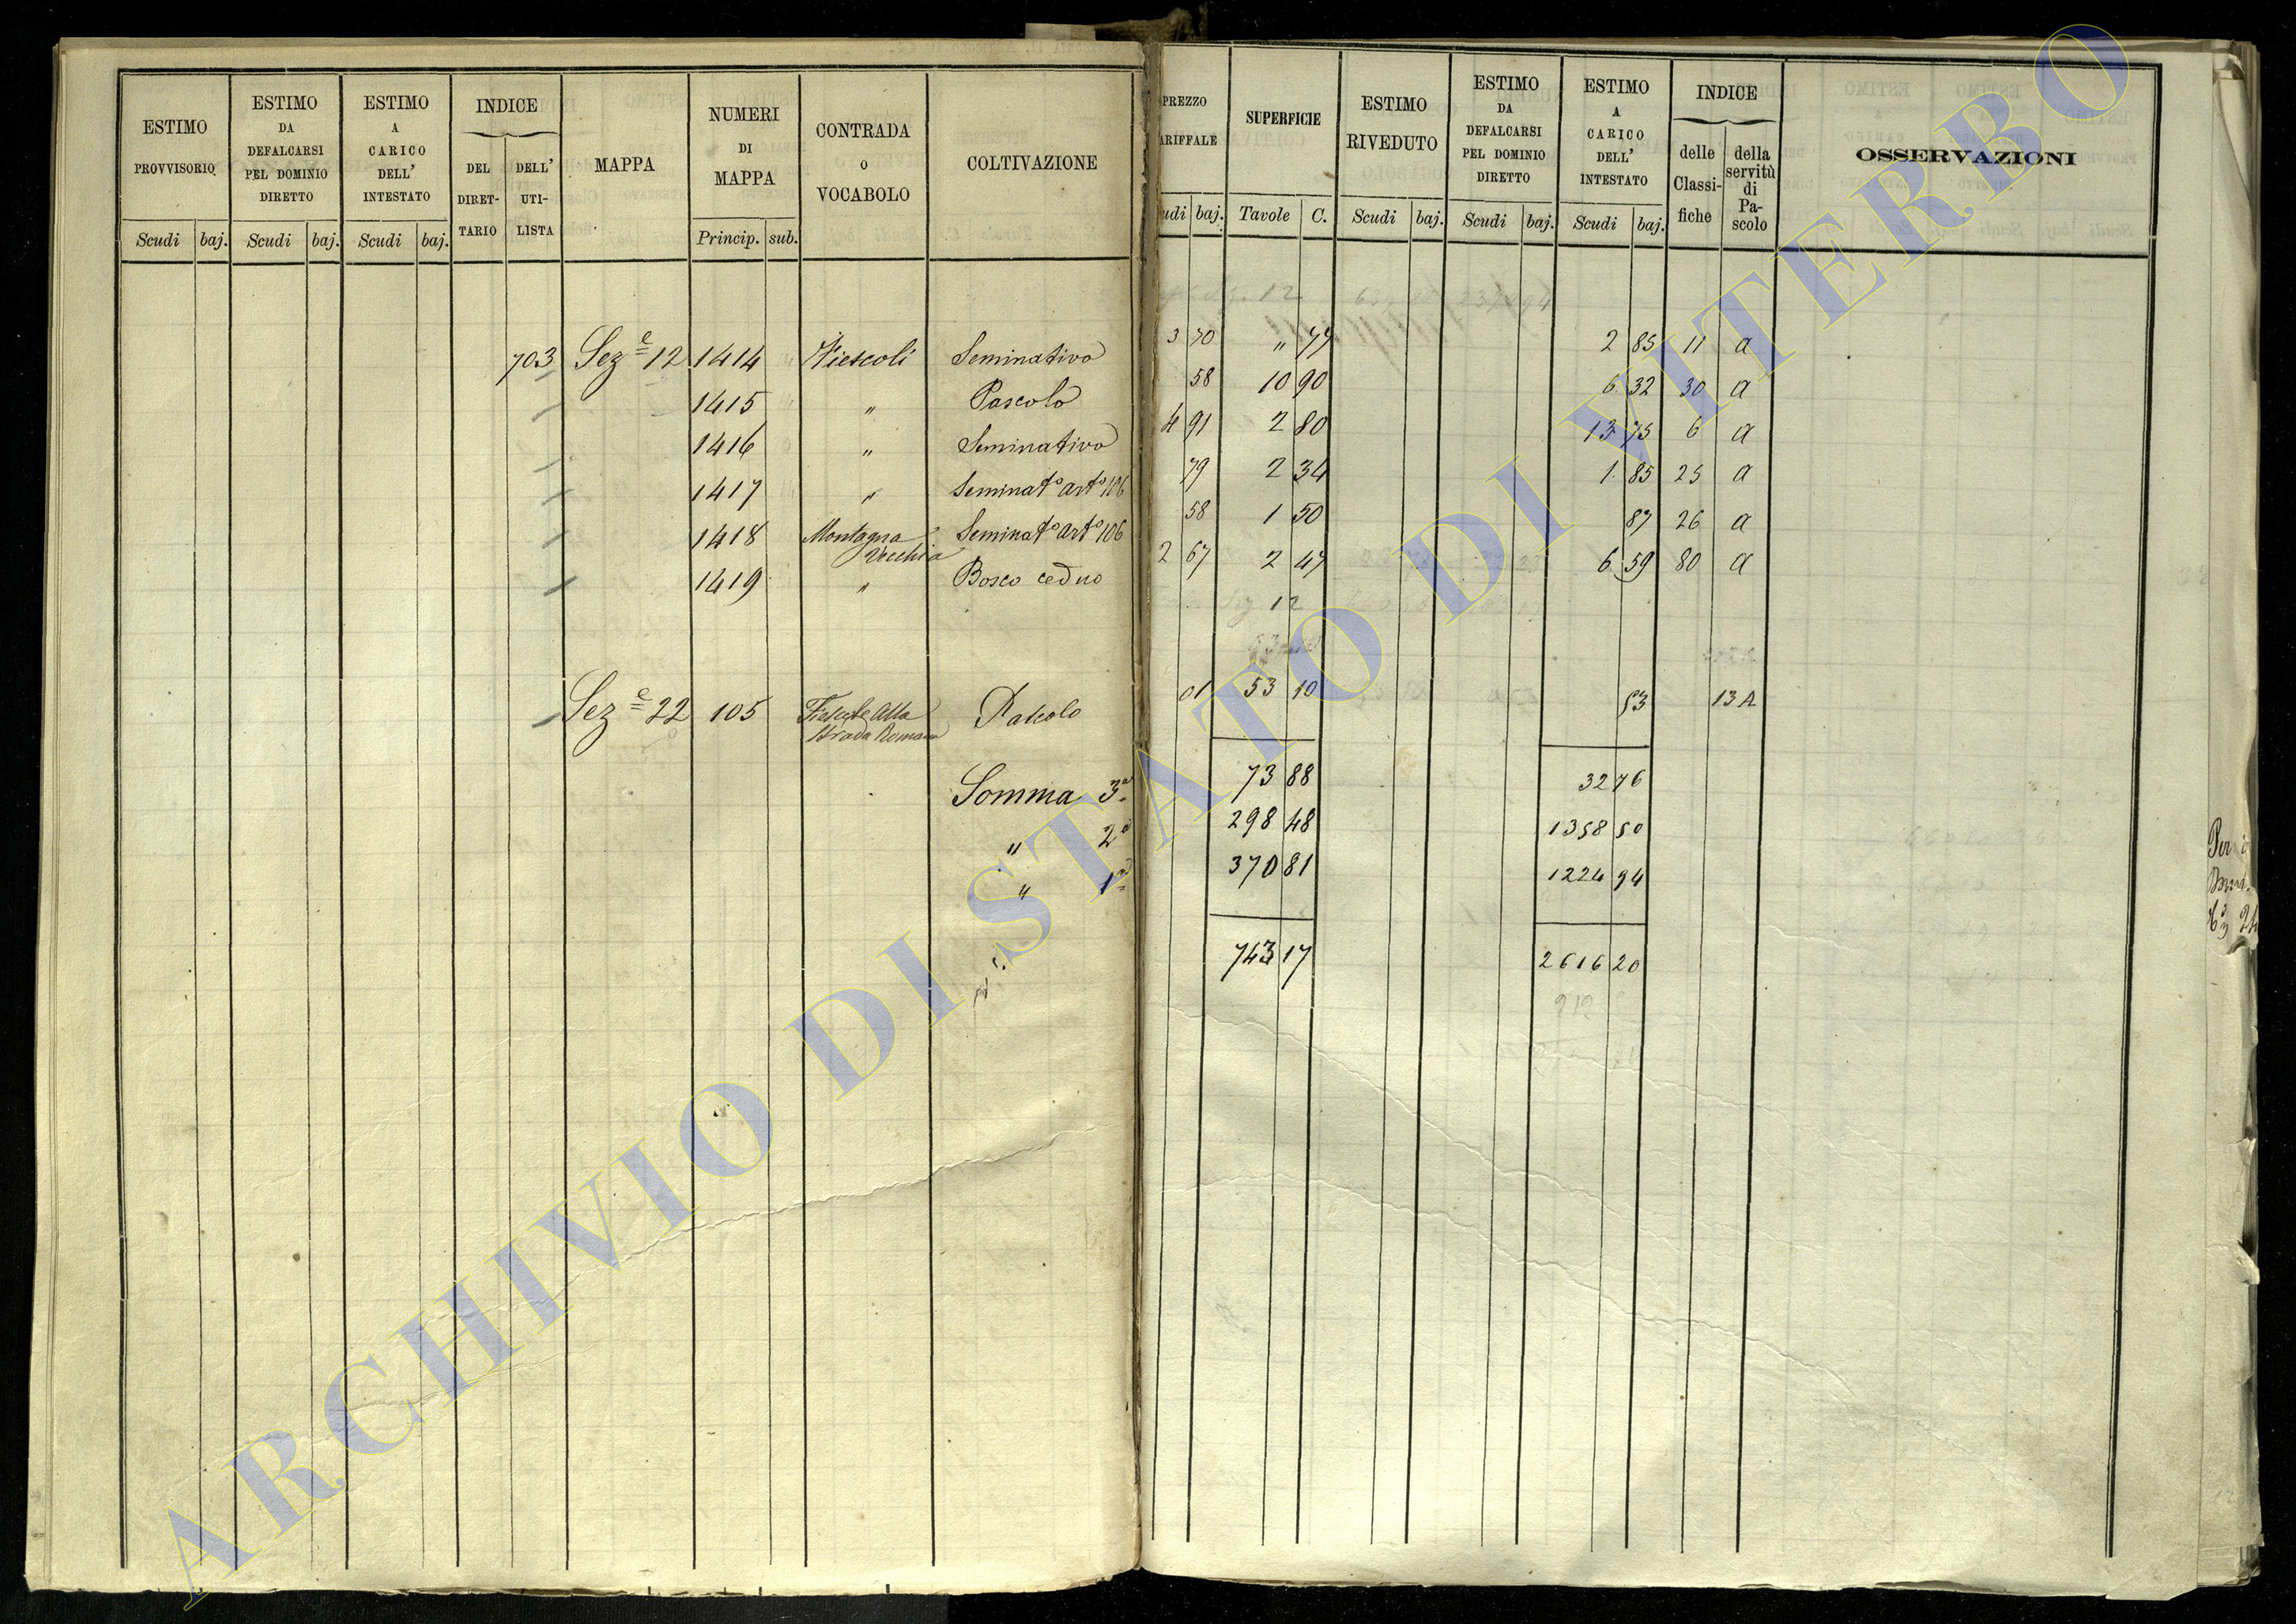 ESTIMO PROVVISORIO
ESTIMO DA DEFALCARSI PEL DOMINIO DIRETTO
ESTIMO A CARICO DELL' INTESTATO
INDICE
DEL DIRET-TARIO
DELL' UTI-LISTA
MAPPA
NUMERI DI MAPPA
CONTRADA o VOCABOLO
COLTIVAZIONE
Scudi baj. Scudi baj. Scudi baj. Princip. sub.
703 Sez.e 12 1414 Seminativo
1415 " Pascolo
1416 " Seminativo
1417 " Seminato Arto 106
1418 Montagna Vecchia Seminato Arto 106
1419 " Bosco ceduo
Sez.e 22 105 Alla Strada Romana Pascolo
Somma 3a
" 2a
" 1a
PREZZO
ARIFFALE
SUPERFICIE
ESTIMO RIVEDUTO
ESTIMO DA DEFALCARSI PEL DOMINIO DIRETTO
ESTIMO A CARICO DELL' INTESTATO
INDICE
delle Classi-fiche
della servitù di Pa-scolo
OSSERVAZIONI
udi baj. Tavole C. Scudi baj. Scudi baj. Scudi baj.
3 70 " 77 2 85 11 a
58 10 90 6 32 30 a
4 91 2 80 13 75 6 a
79 2 34 1 85 25 a
58 1 50 87 26 a
2 67 2 47 6 59 80 a
01 53 10 53 13 A
73 88 32 76
298 48 1358 50
370 81 1224 94
743 17 2616 20
912
ARCHIVIO DI STATO DI VITERBO